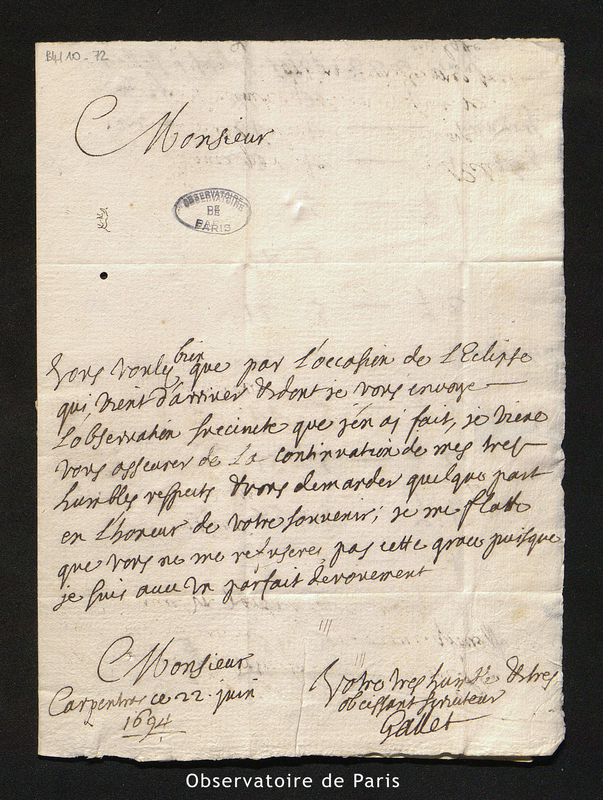 B4/10-72
Monsieur
OBSERVATOIRE
DE
PARIS
Vous voulez bien que par l'occasion de l'Eclipse
qui vient d'arriver & dont je vous envoye
L'observation succincte que j'en ai fait, je viene
vous asseurer de la continuation de mes tres
humbles respects & vous demander quelque part
en l'honeur de votre souvenir; je me flatte
que vous ne me refuseres pas cette grace puisque
je suis avec un parfait devouement
Monsieur
Carpentras ce 22 juin
1694
Votre tres humble & tres
obeissant serviteur
Gallet
Observatoire de Paris